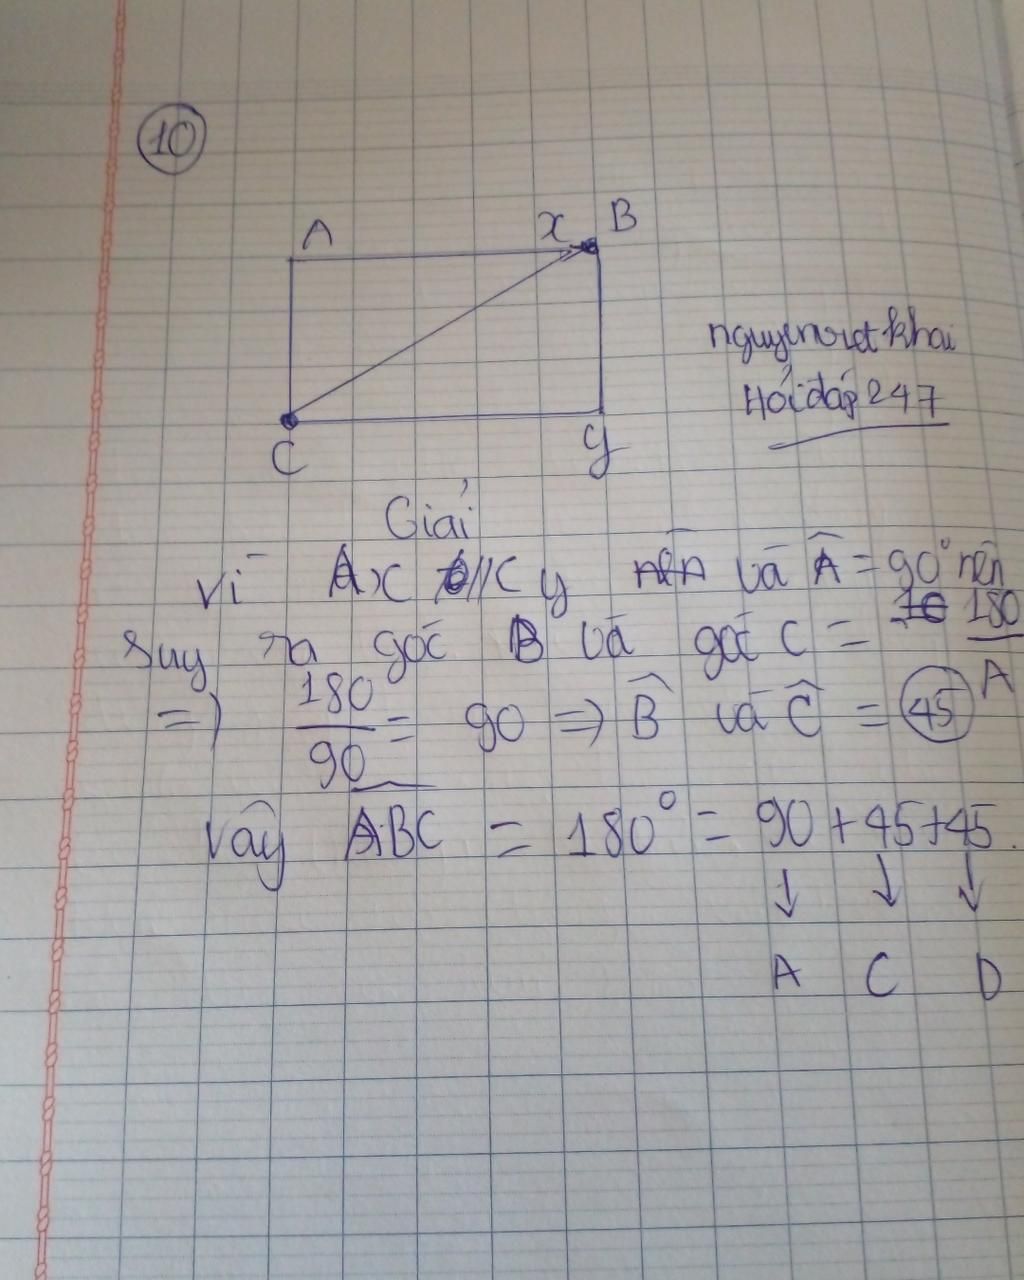 10
A x B
nguyenvietkhai
Hỏi đáp 247
C y
Giải
Vì Ax // Cy và Â = 90° nên
Suy ra góc B và góc C = 180
A
=> 180/90 = 90 => B̂ và Ĉ = 45
Vậy ABC = 180° = 90 + 45 + 45.
↓ ↓ ↓
A C D